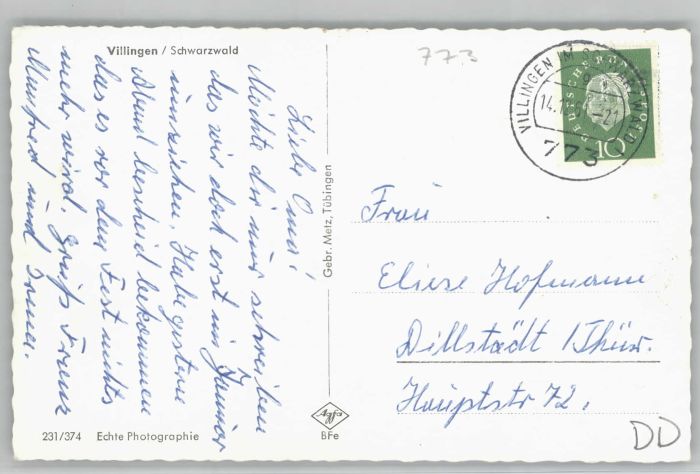 Villingen / Schwarzwald
773
Liebe Oma!
Möchte dir nur schreiben
das wir doch erst im Januar
umziehen. Habe gestern
Abend bescheid bekommen
das es vor dem Fest nichts
mehr wird. Gruß Franz
Manfred und
Gebr. Metz, Tübingen
VILLINGEN IM SCHWARZWALD
14.11.
-21
773
DEUTSCHE BUNDESPOST
10
Frau
Eliese Hofmann
Dillstädt /Thür.
Hauptstr 72.
231/374 Echte Photographie
Agfa
BFe
DD